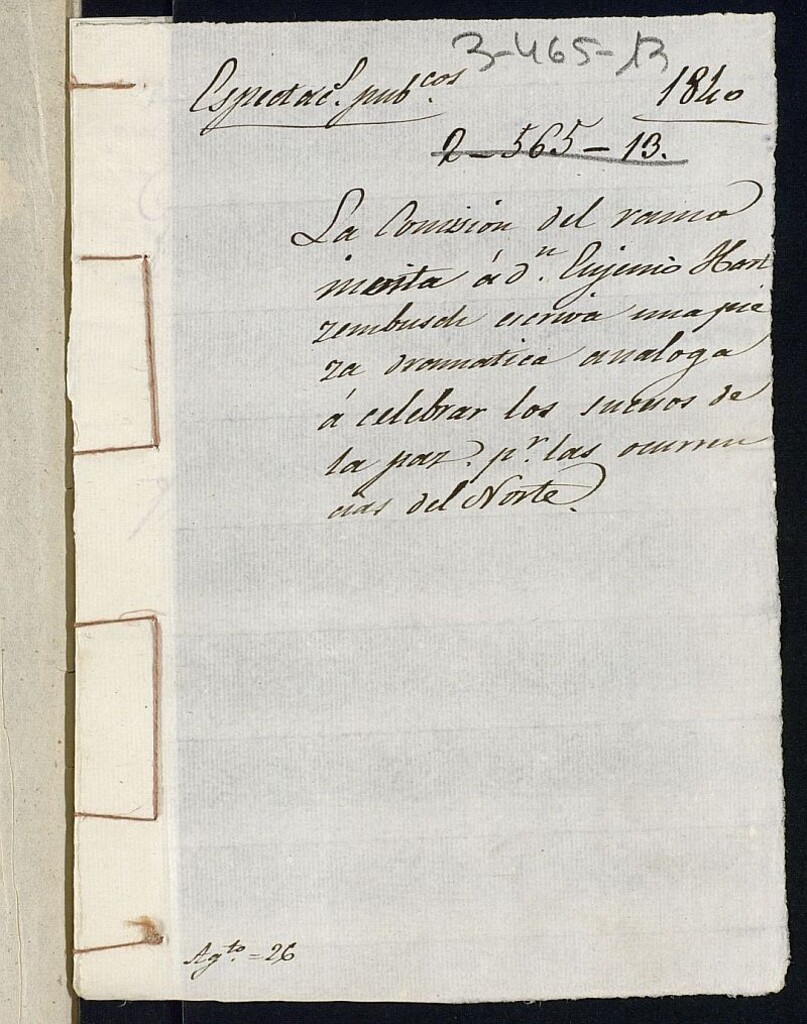 3-465-13
Espectac.s pub.cos 1840
2-565-13.
La Comision del ramo
invita á d.n Eujenio Hart
zembusch escriva una pie
za dramatica analoga
á celebrar los sucesos de
la paz. p.r las ocurren
cias del Norte.
Ag.to = 26